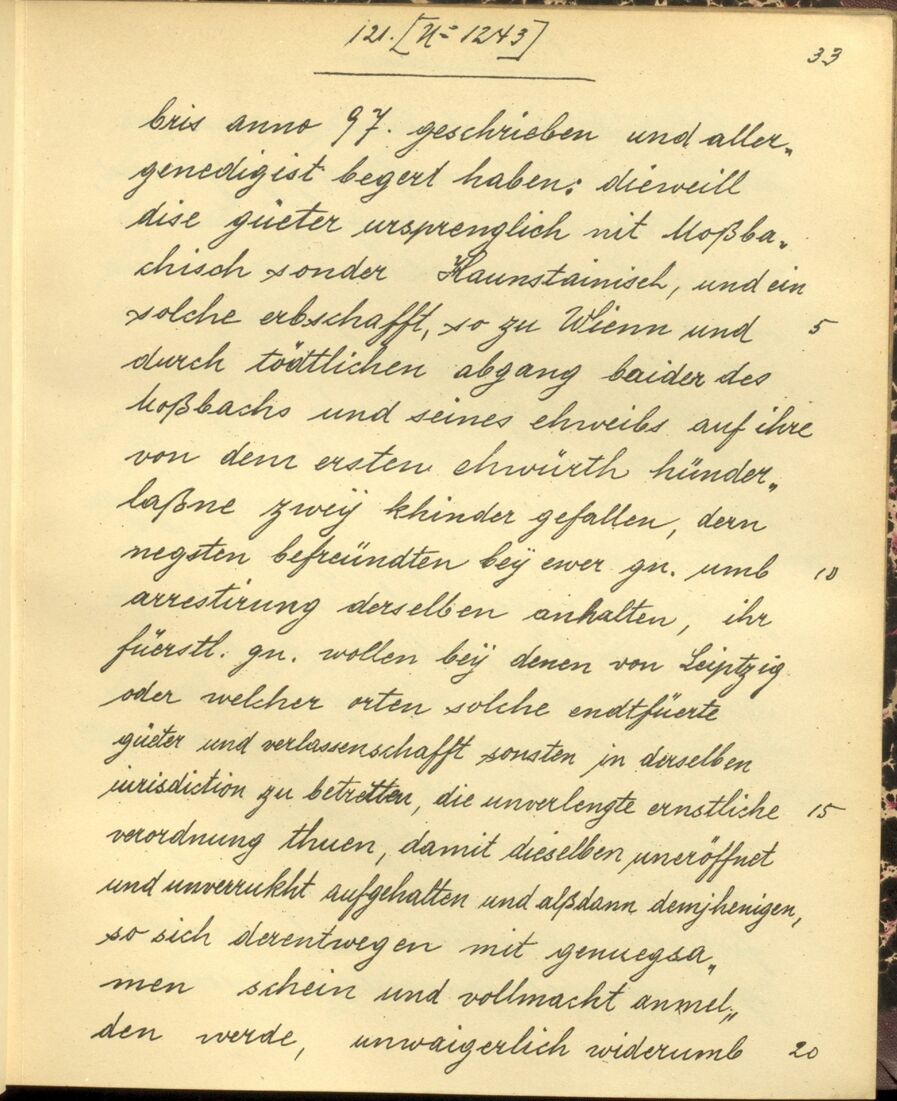 121. [N= 1243]
33
bris anno 97. geschrieben und aller„
genedigist begert haben: dieweill
dise güeter ursprenglich nit Moßba„
chisch sonder Haunstainisch, und ein
solche erbschafft, so zu Wienn und 5
durch tödtlichen abgang baider des
Moßbachs und seines ehweibs auf ihre
von dem ersten ehwürth hünder„
laßne zweÿ khinder gefallen, dern
negsten befreündten beÿ ewer gn. umb 10
arrestirung derselben anhalten, ihr
füerstl. gn. wollen beÿ denen von Leiptzig
oder welcher orten solche endtfüerte
güeter und verlassenschafft sonsten in derselben
iurisdiction zu betretten, die unverlengte ernstliche 15
verordnung thuen, damit dieselben uneröffnet
und unverrukht aufgehalten und alßdann demjhenigen,
so sich derentwegen mit genuegsa„
men schein und vollmacht anmel„
den werde, unwaigerlich widerumb 20